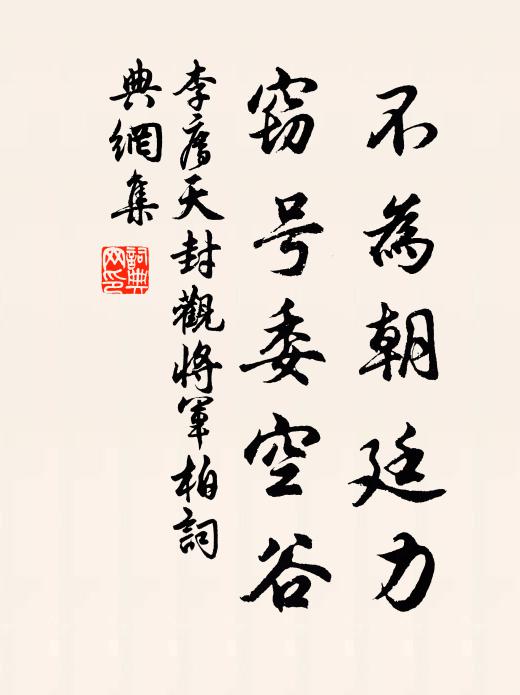 不為朝廷力
窃号委空谷
李廌天封觀將軍柏詞
典網集
詞典網印